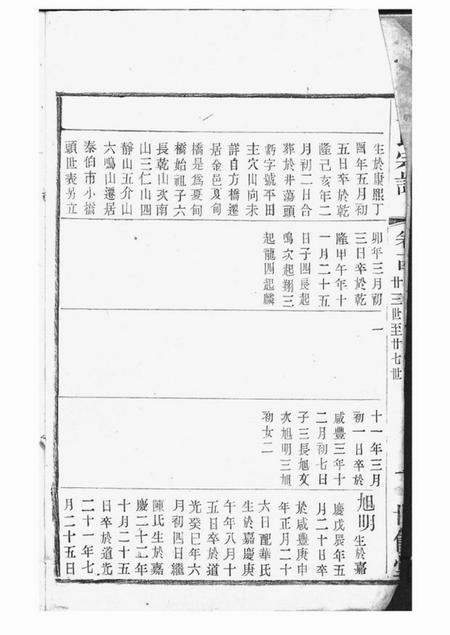 氏宗譜
卷首
廿三世至廿七世
生於康熙丁
酉年五月初
五日卒於乾
隆己亥年二
月初二日合
葬於井蕩頭
新字號平田
主穴山向未
詳自方橋遷
居金邑夏甸
橋是爲夏甸
橋始祖子六
長乾山次南
山三仁山四
靜山五介山
六鳴山遷居
泰伯市小橋
頭世表另立
卯年三月初
三日卒於乾
隆甲午年十
一月二十五
日子四長起
鳴次起翔三
起龍四起麟
一
十一年三月
初一日卒於
咸豐三年十
二月初七日
子三長旭文
次旭明三旭
初女二
旭明
生於嘉
慶戊辰年五
月二十日卒
於咸豐庚申
年正月二十
六日配華氏
生於嘉慶庚
午年八月十
五日卒於道
光癸巳年六
月初四日繼
陳氏生於嘉
慶二十二年
十月二十五
日卒於道光
二十一年七
月二十五日